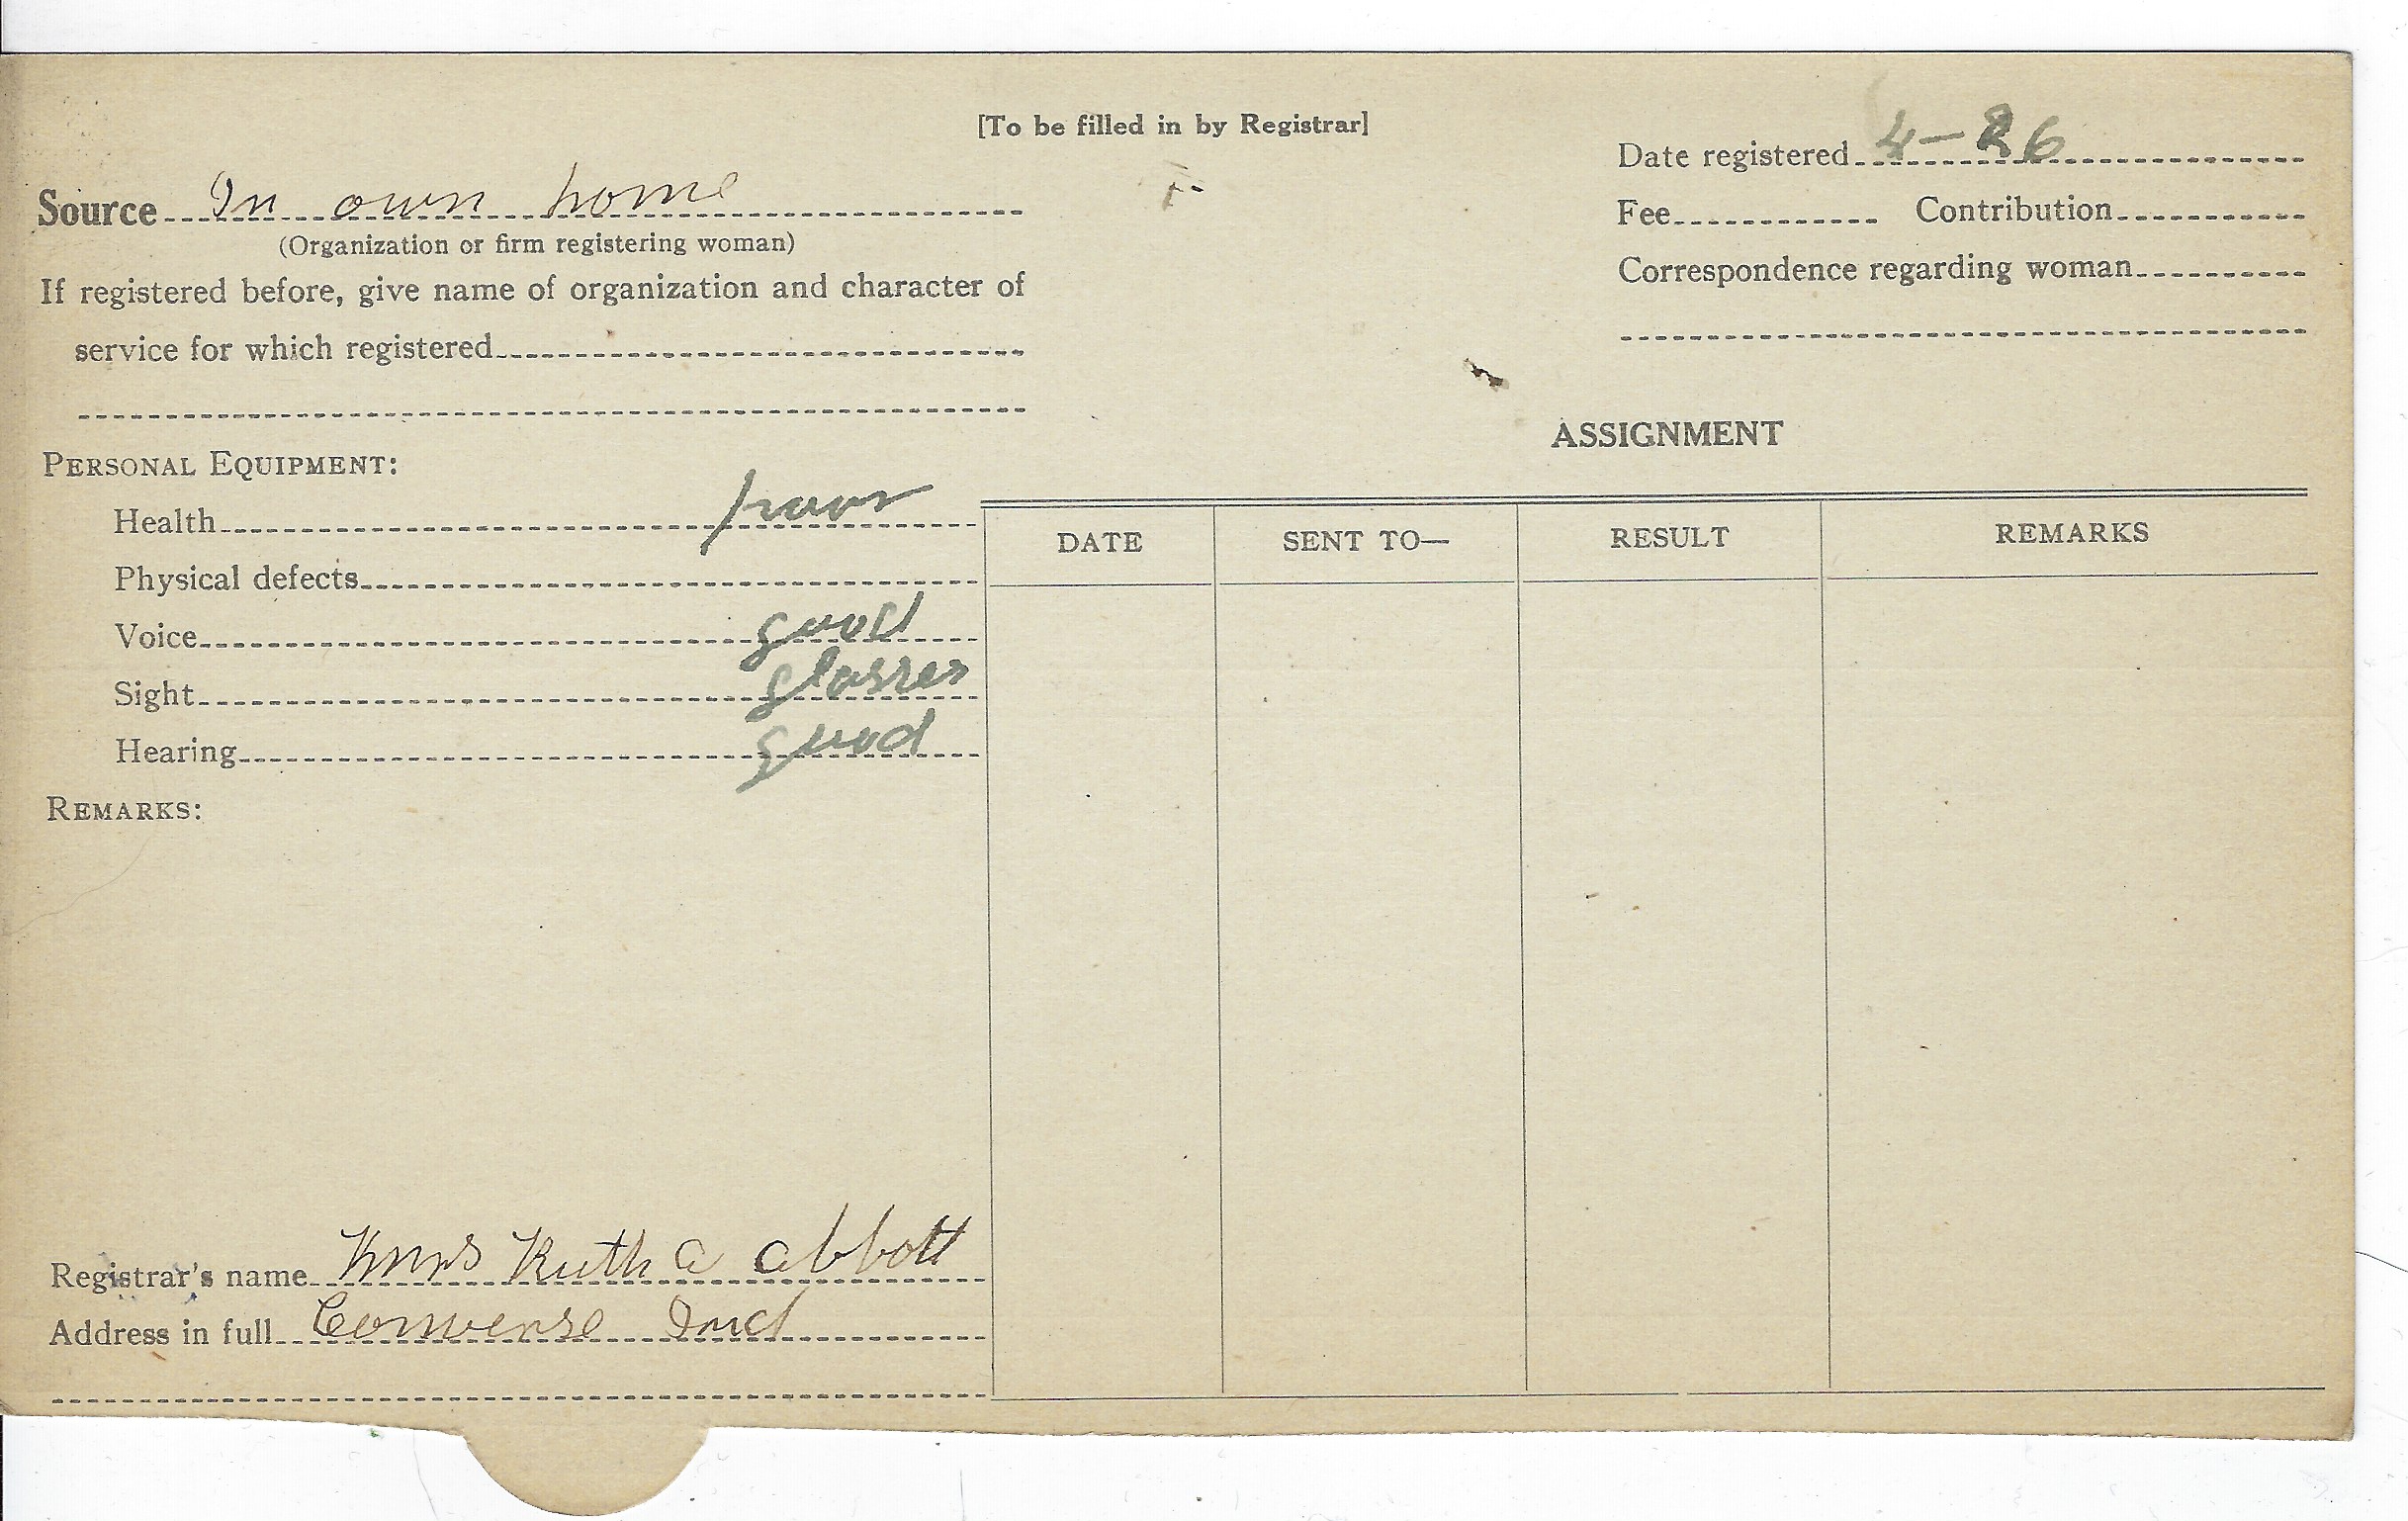 [To be filled in by Registrar]
Date registered 4-26
Source In own home
(Organization or firm registering woman)
Fee Contribution
If registered before, give name of organization and character of
service for which registered
Correspondence regarding woman
ASSIGNMENT
PERSONAL EQUIPMENT:
Health poor
Physical defects
Voice good
Sight glasses
Hearing good
DATE SENT TO— RESULT REMARKS
REMARKS:
Registrar's name Mrs Ruth a abbott
Address in full Converse Ind